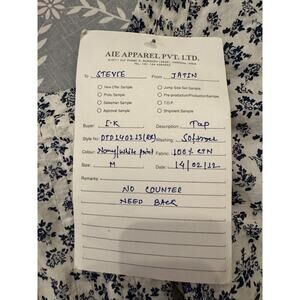 AIE APPAREL PVT. LTD.
To STEVIE From JATIN
New Offer Sample Jump Size Set Sample
Photo Sample Pre-production/Production Sample
Salesman Sample T.O.P.
Approval Sample Shipment Sample
Buyer: Description: Top
Style No: Washing: Softner
Colour: Navy/white print Fabric: 100% CTN
Size: M Date: 14/02/22
Remarks:
NO COUNTER
NEED BACK